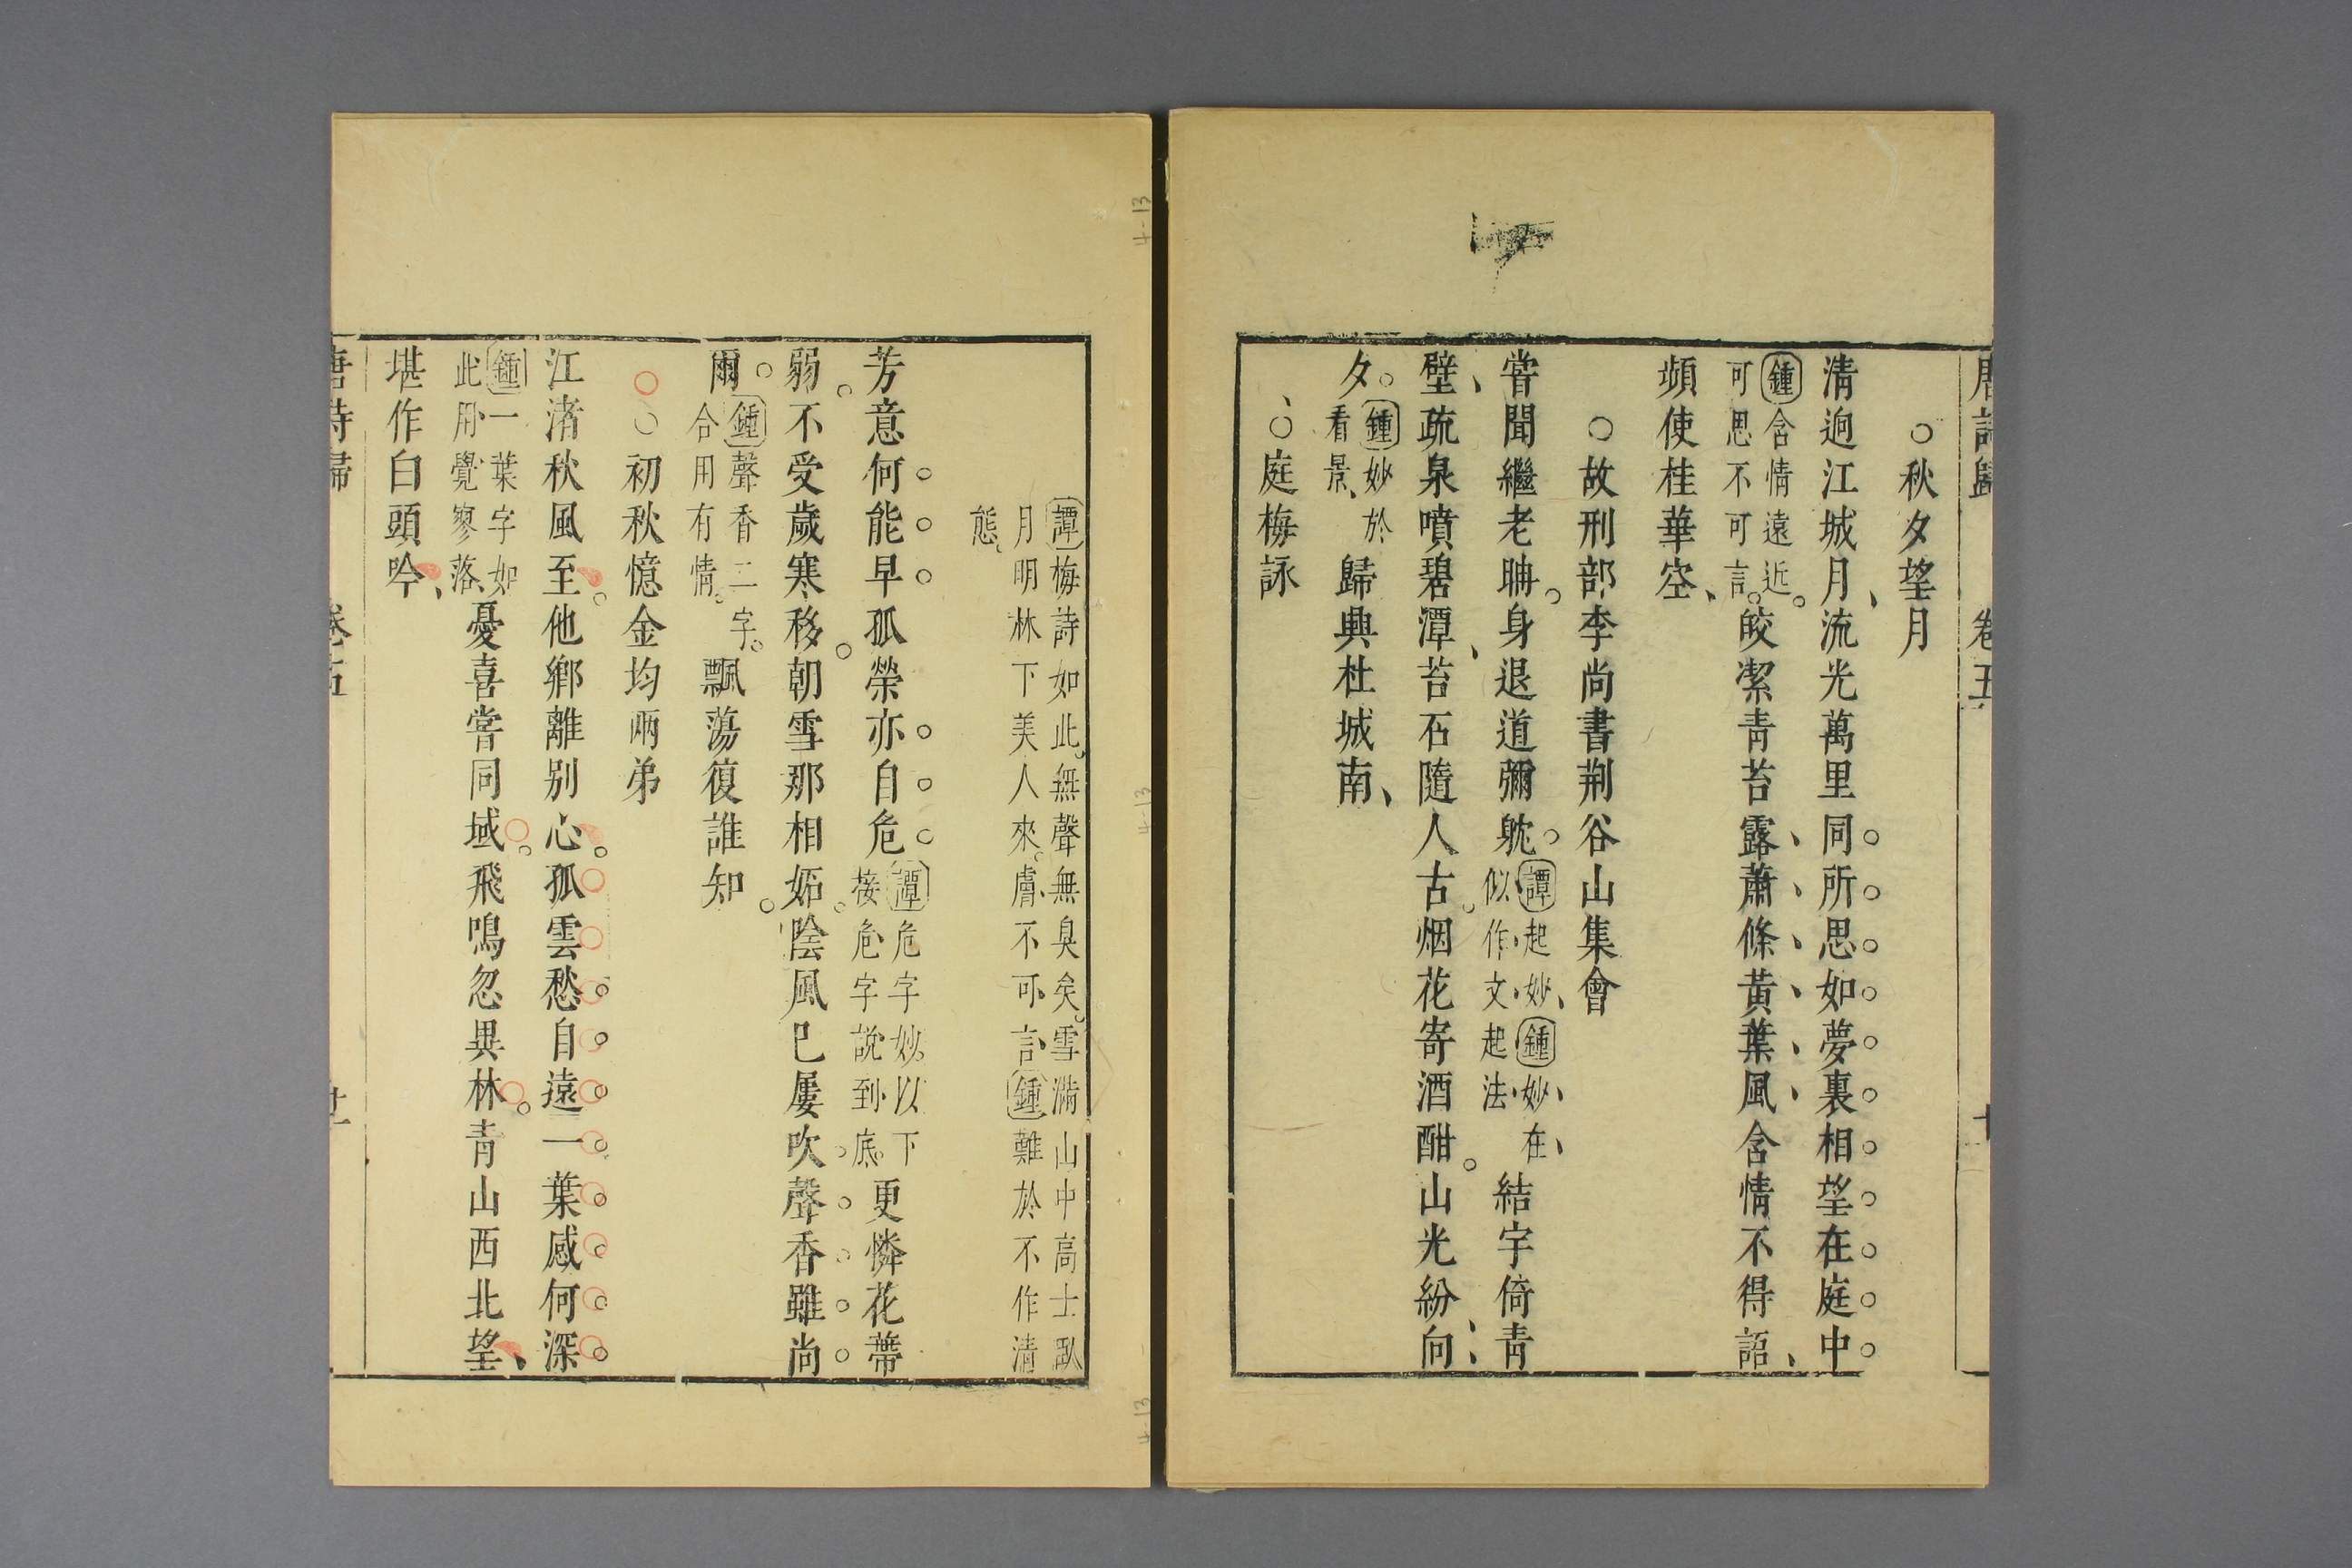 唐詩歸 卷五
○秋夕望月
清逈江城月流光萬里同所思如夢裏相望在庭中
鍾含情遠近
可思不可言
皎潔青苔露蕭條黃葉風含情不得語
頻使桂華空
○故刑部李尚書荆谷山集會
嘗聞繼老聃身退道彌躭
譚起妙鍾妙在
似作文起法
結宇倚青
壁疏泉噴碧潭苔石隨人古烟花寄酒酣山光紛向
夕
鍾妙於
看景
歸興杜城南
○庭梅詠
譚梅詩如此無聲無臭矣雪滿山中高士臥
月明林下美人來膚不可言鍾難於不作清
態
芳意何能早孤榮亦自危
譚危字妙以下
接危字說到底
更憐花蔕
弱不受歲寒移朝雪那相妬陰風已屢吹聲香雖尚
爾
鍾聲香二字
合用有情
飄蕩復誰知
○初秋憶金均兩弟
江渚秋風至他鄉離別心孤雲愁自遠一葉感何深
鍾一葉字如
此用覺寥落
憂喜嘗同域飛鳴忽異林青山西北望
堪作白頭吟
唐詩歸 卷五
4-13
4-13
4-13